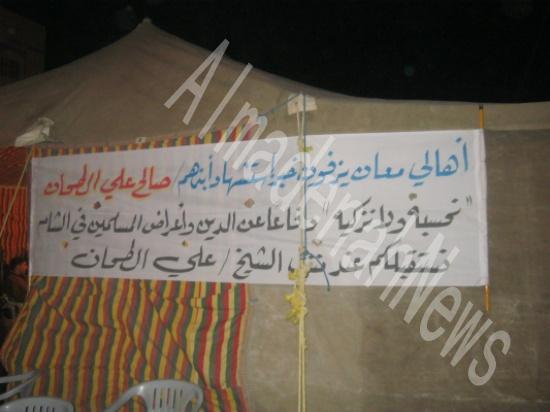 أهالي معان يزفون خبر استشهاد أبنهم / صالح علي الطحان
"نحسبه ولا نزكيه" دفاعا عن الدين وأعراض المسلمين في الشام
نستقبلكم عند الشيخ / علي الطحان
Almadenah News